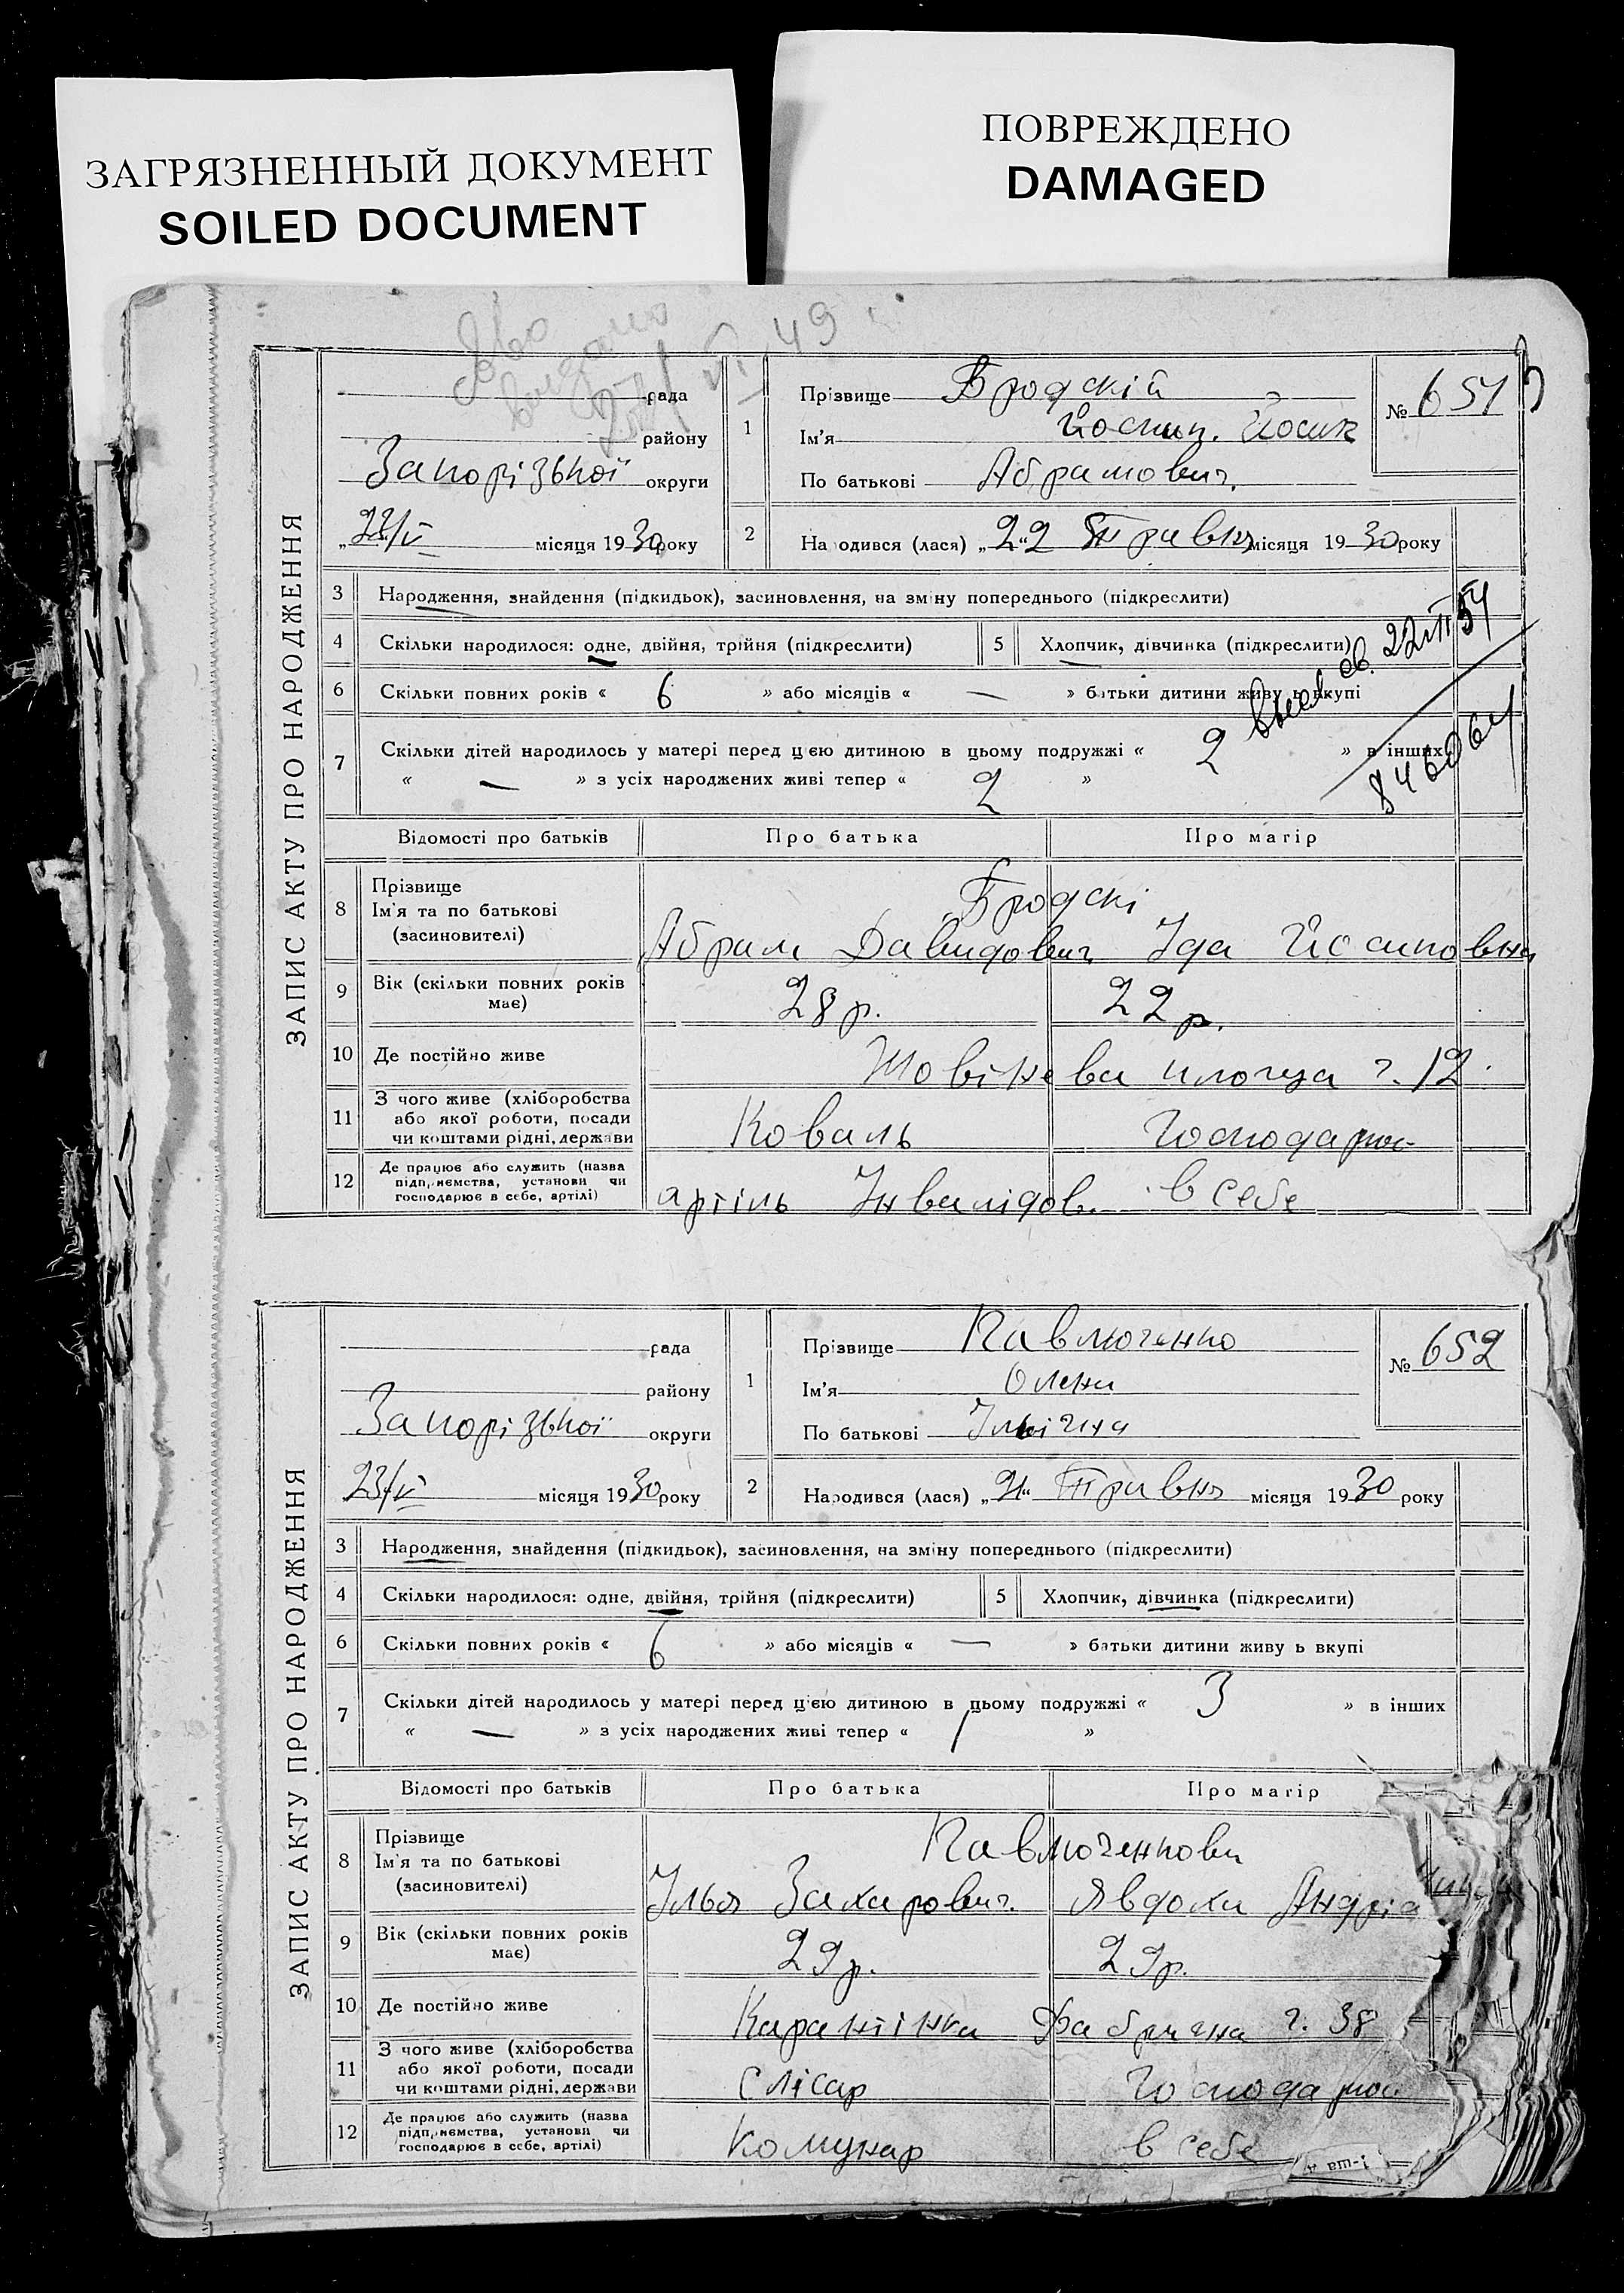 ЗАГРЯЗНЕННЫЙ ДОКУМЕНТ
SOILED DOCUMENT
ПОВРЕЖДЕНО
DAMAGED
49
ЗАПИС АКТУ ПРО НАРОДЖЕННЯ
рада
району
Запорізької округи
23/V місяця 1930 року
1 Прізвище Бродскій
Ім'я Йосип. Йосик
По батькові Абрамович.
№ 651
2 Народився (лася) „22“ Травня місяця 1930 року
3 Народження, знайдення (підкидьок), засиновлення, на зміну попереднього (підкреслити)
4 Скільки народилося: одне, двійня, трійня (підкреслити) 5 Хлопчик, дівчинка (підкреслити)
6 Скільки повних років « 6 » або місяців « — » батьки дитини живуть вкупі
7 Скільки дітей народилось у матері перед цією дитиною в цьому подружжі « 2 » в інших
« — » з усіх народжених живі тепер « 2 »
Відомості про батьків Про батька Про матір
8 Прізвище Ім'я та по батькові (засновителі)
Бродскі
Абрам Давидович Іда Йосиповна
9 Вік (скільки повних років має) 28 р. 22 р.
10 Де постійно живе площа ч. 12
11 З чого живе (хліборобства або якої роботи, посади чи коштами рідні, держави Коваль Господарює
12 Де працює або служить (назва підприємства, установи чи господарює в себе, артілі) артіль Інвалідов. в себе
ЗАПИС АКТУ ПРО НАРОДЖЕННЯ
рада
району
Запорізької округи
23/V місяця 1930 року
1 Прізвище Павлюченко
Ім'я Олена
По батькові Ільічна
№ 652
2 Народився (лася) „21“ Травня місяця 1930 року
3 Народження, знайдення (підкидьок), засиновлення, на зміну попереднього (підкреслити)
4 Скільки народилося: одне, двійня, трійня (підкреслити) 5 Хлопчик, дівчинка (підкреслити)
6 Скільки повних років « 6 » або місяців « — » батьки дитини живуть вкупі
7 Скільки дітей народилось у матері перед цією дитиною в цьому подружжі « 3 » в інших
« — » з усіх народжених живі тепер « 1 »
Відомості про батьків Про батька Про матір
8 Прізвище Ім'я та по батькові (засиновителі)
Павлюченкови
Ілья Захарович. Явдоха
9 Вік (скільки повних років має) 29 р. 29 р.
10 Де постійно живе Карантінка Фабрична ч. 38
11 З чого живе (хліборобства або якої роботи, посади чи коштами рідні, держави Слісар Господарює
12 Де працює або служить (назва підприємства, установи чи господарює в себе, артілі) Комунар в себе